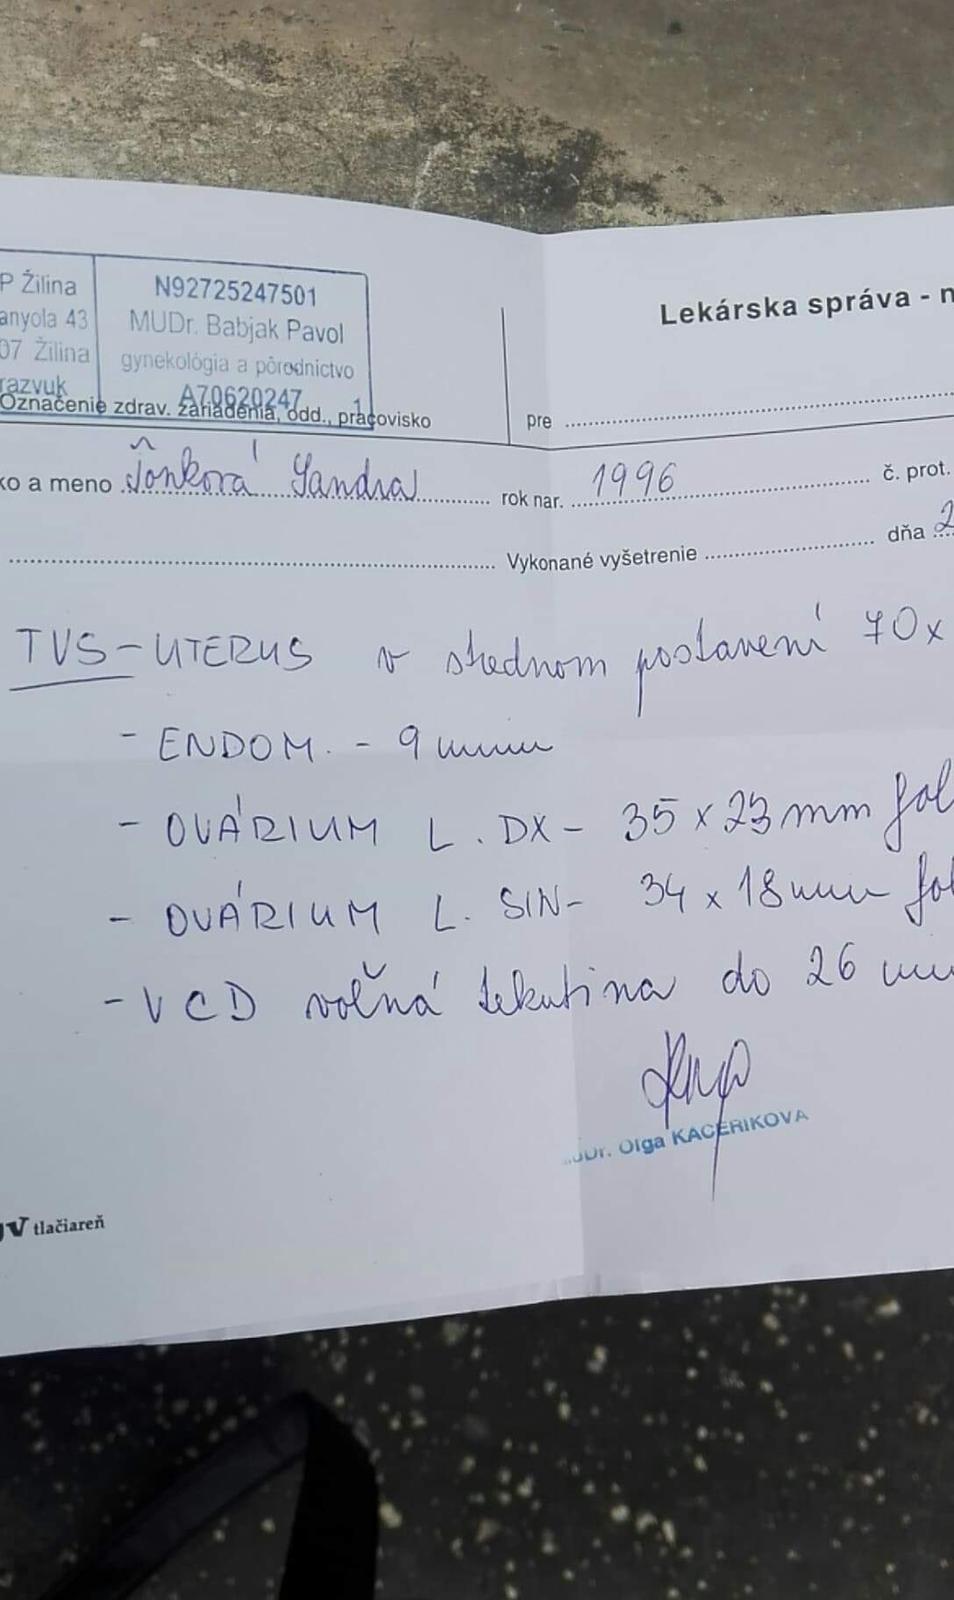 P Žilina
anyola 43
07 Žilina
razvuk
N92725247501
MUDr. Babjak Pavol
gynekológia a pôrodnictvo
A70620247 1
Označenie zdrav. zariadenia, odd., pracovisko
Lekárska správa - n
pre
ko a meno Ťonková Sandra rok nar. 1996 č. prot.
Vykonané vyšetrenie dňa 2
TVS - UTERUS v strednom postavení 70x
- ENDOM. - 9 mm
- OVÁRIUM L. DX - 35 x 23 mm fol
- OVÁRIUM L. SIN - 34 x 18 mm fol
- V CD voľná tekutina do 26 mm
MUDr. Olga KACERIKOVA
tlačiareň